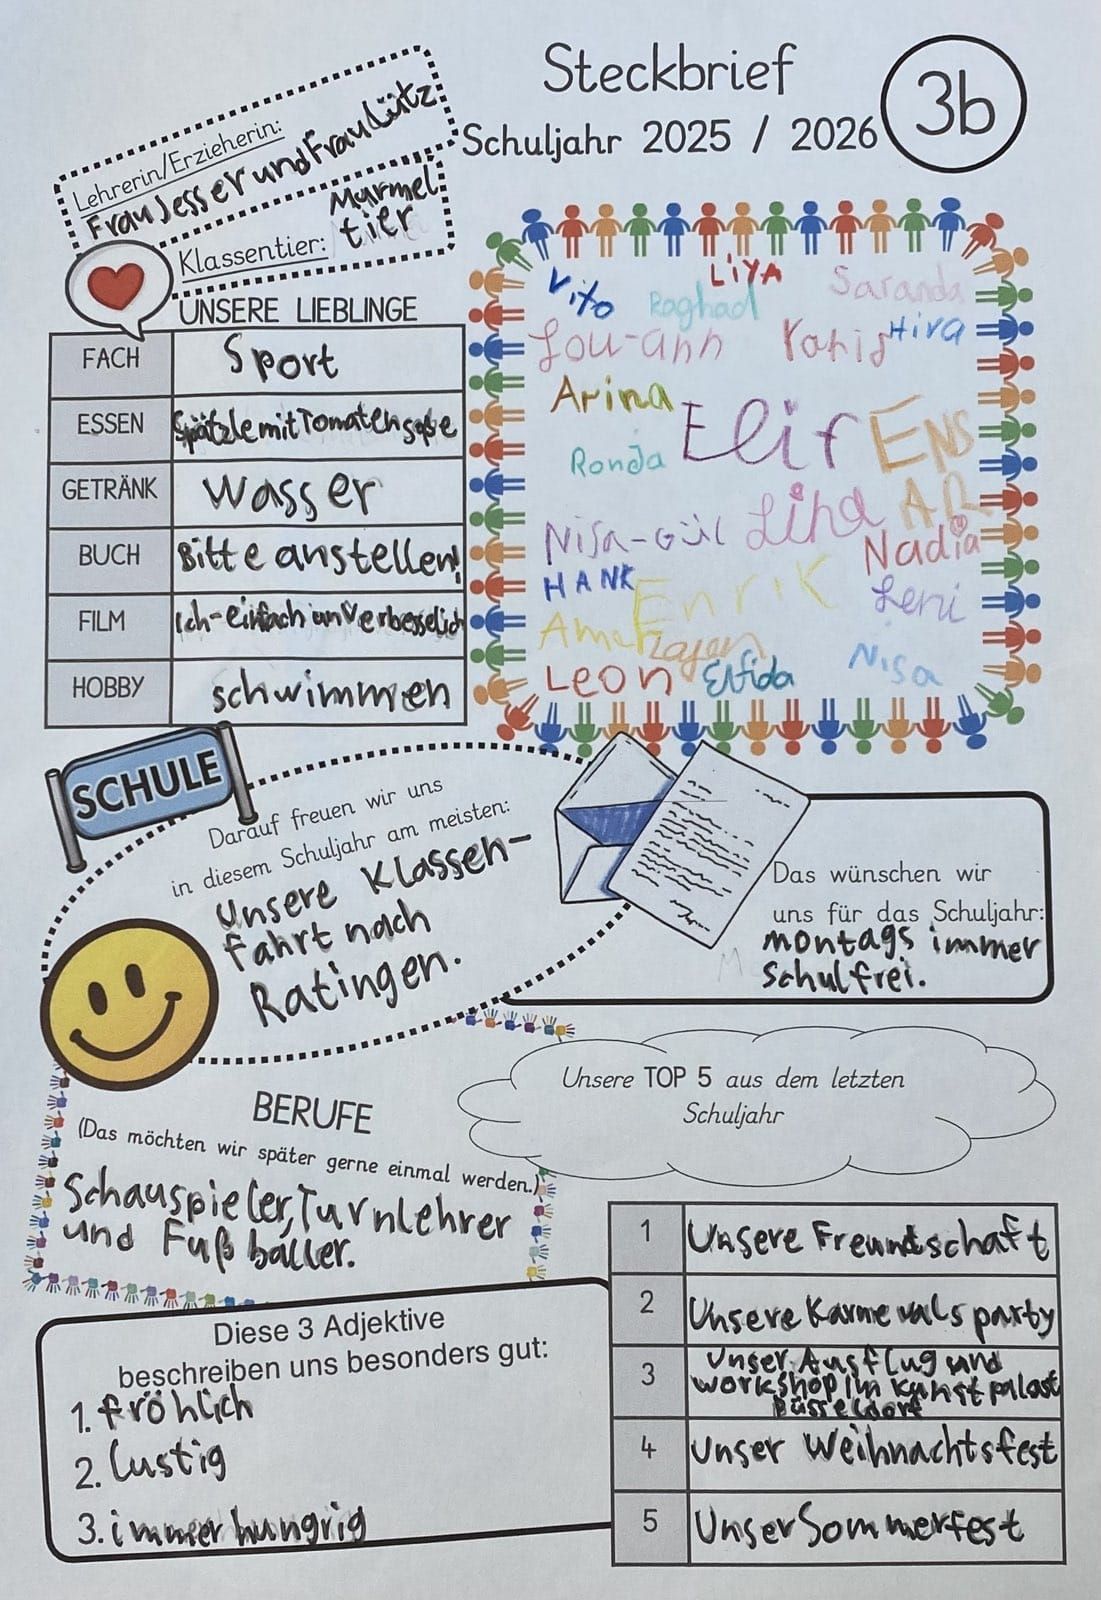 Steckbrief
Schuljahr 2025 / 2026
3b
Lehrerin/Erzieherin:
Frau Jesser und Frau Lütz
Klassentier:
Murmel
tier
UNSERE LIEBLINGE
FACH Sport
ESSEN Spätzle mit Tomatensoße
GETRÄNK Wasser
BUCH Bitte anstellen!
FILM Ich-einfach unverbesselich
HOBBY schwimmen
Vito
LiYA
Raghad
Saranda
Lou-ann
Hira
Arina
Elif
ENS
AR
Ronja
Nisa-Gül
Lina
Nadia
HANK
Enrik
Leni
Leon
Elfida
Nisa
SCHULE
Darauf freuen wir uns
in diesem Schuljahr am meisten:
Unsere Klassen-
fahrt nach
Ratingen.
Das wünschen wir
uns für das Schuljahr:
montags immer
Schulfrei.
BERUFE
(Das möchten wir später gerne einmal werden.)
Schauspieler, Turnlehrer
und Fußballer.
Unsere TOP 5 aus dem letzten
Schuljahr
1 Unsere Freundschaft
2 Unsere Karnevalsparty
3 Unser Ausflug und
workshop im Kunstpalast
Düsseldorf
4 Unser Weihnachtsfest
5 Unser Sommerfest
Diese 3 Adjektive
beschreiben uns besonders gut:
1. fröhlich
2. lustig
3. immer hungrig